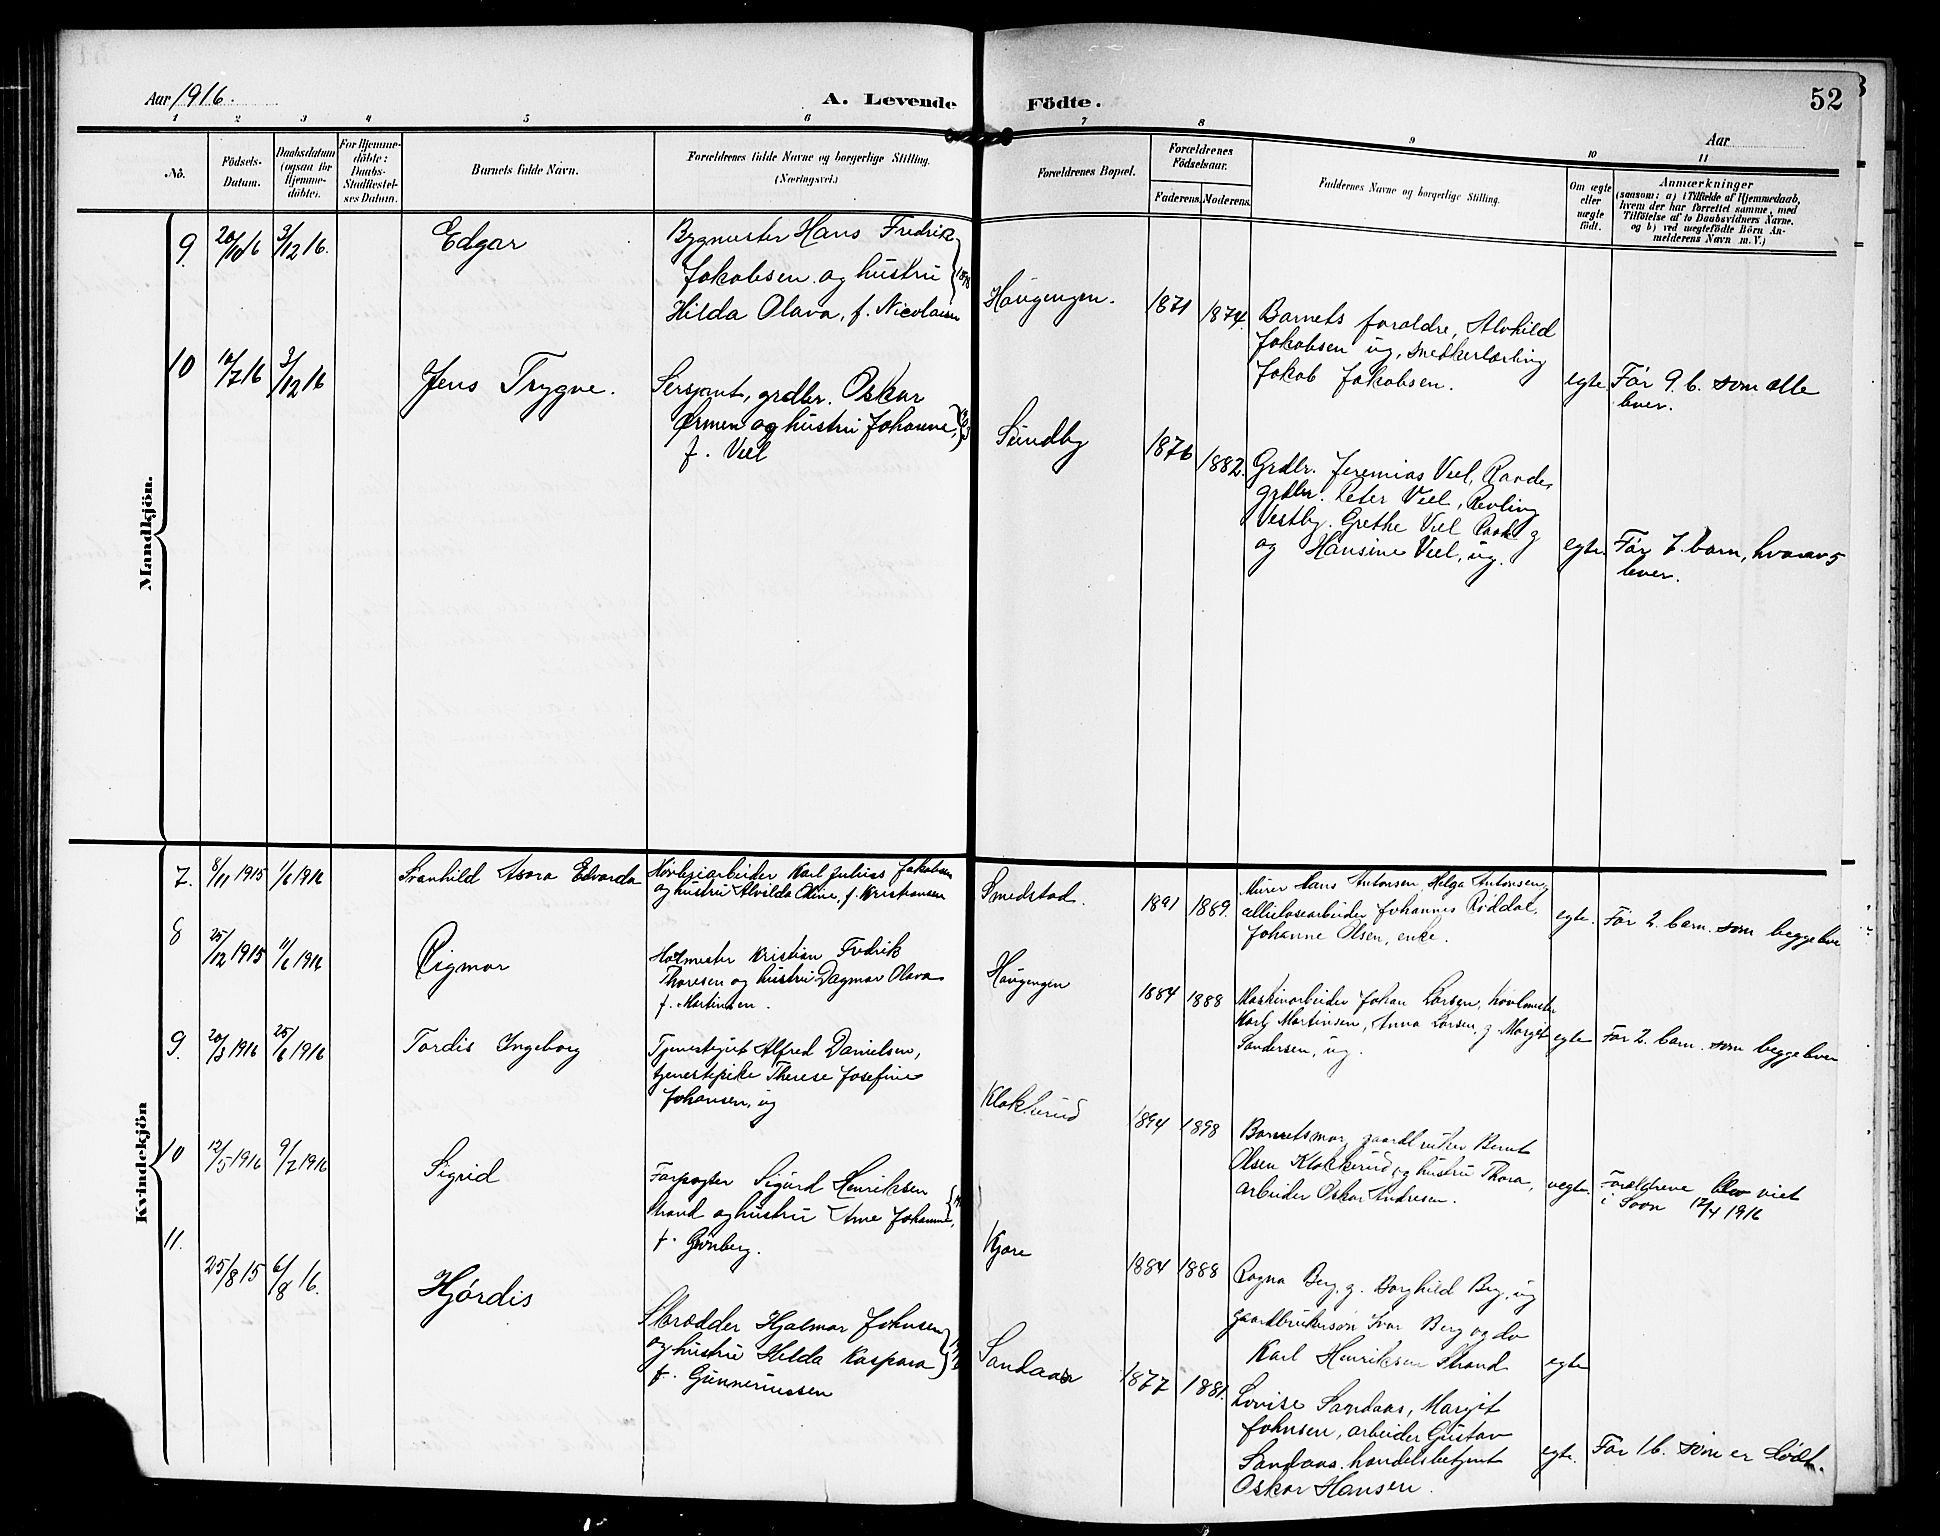 Aar 1916.
A. Levende Födte.
52
Aar
1 2 3 4 5 6 7 8 9 10 11
No.
Födsels-Datum.
Daabsdatum (ogsaa for Hjemme-döbte).
For Hjemme-döbte: Daabs-Stadfæstel-ses Datum.
Barnets fulde Navn.
Forældrenes fulde Navne og borgerlige Stilling. (Næringsvei.)
Forældrenes Bopæl.
Forældrenes Födselsaar.
Faderens. Moderens.
Faddernes Navne og borgerlige Stilling.
Om ægte eller uægte födt.
Anmærkninger
(saasom: a) i Tilfælde af Hjemmedaab, hvem der har forrettet samme, med Tilföielse af to Daabsvidners Navne. og b) ved uægtefödte Börn An-melderens Navn m. V.)
Mandkjön.
9. 20/10 16 3/12 16. Edgar
Bygmester Hans Fredrik
Jakobsen og hustru
Hilda Olava, f. Nicolaisen
Haugengen. 1871 1874.
Barnets foraldre, Alvhild
Jakobsen ug, snedkerlærling
Jakob Jakobsen.
egte. Før 9. b. som alle
lever.
10 10/7 16 3/12 16 Jens Trygve.
Sersjant, grdbr. Oskar
Ørmen og hustru Johanne,
f. Veel
Sundby 1876 1882.
Grdbr. Jeremias Veel, Rande,
grdbr. Peter Veel, Revling
Vestby. Grethe Veel g
og Hansine Veel, ug.
egte. Før 7. barn, hvorav 5
lever.
Kvindekjön
7. 8/11 1915 1/6 1916 Svanhild Asora Edvarda
Høvleriarbeider Karl Julius Jakobsen
og hustru Alvilda Oline, f. Kristiansen
Smedstad. 1891 1889.
Murer Hans Antonsen, Helga Antonsen,
cellulosearbeider Johannes Røddal,
Johanne Olsen, enke.
egte. Før 2. barn. som begge lever
8 25/12 1915 11/6 1916 Rigmor
Kristian Fredrik
Thoresen og hustru Dagmar Olava
f. Martinsen.
Haugengen 1884 1888
Maskinarbeider Johan Larsen, høvlmester
Karl Martinsen, Anna Larsen, g. Margit
Sandersen, ug.
egte Før 2. barn. som begge lever
9. 20/3 1916 25/6 1916 Tordis Ingeborg
Tjenestegut Alfred Danielsen,
tjenestepike Therese Josefine
Johansen, ug
Klokkerud 1894 1898
Barnetsmor, gaardbruker Bernt
Olsen Klokkerud og hustru Thora,
arbeider Oskar Andresen.
uegte. Forældrene blev viet
i Soon 12/4 1916
10 12/5 1916 9/7 1916 Sigrid
Forpagter Sigurd Henriksen
Strand og hustru Arne Johanne,
f. Grønberg.
Kjære 1884 1888
Ragna Berg, g. Borghild Berg, ug
gaardbrukersøn Ivar Berg og do
Karl Henriksen Strand
egte
11. 25/8 15 6/8 16. Hjørdis
Skrædder Hjalmar Johnsen
og hustru Hilda Kaspara
f. Gunneriussen
Sandaas 1877 1881.
Lovise Sandaas, Margit
Johnsen, arbeider Gustav
Sandaas. handelsbetjent
Oskar Hansen.
egte. Før 1 b. som er død.